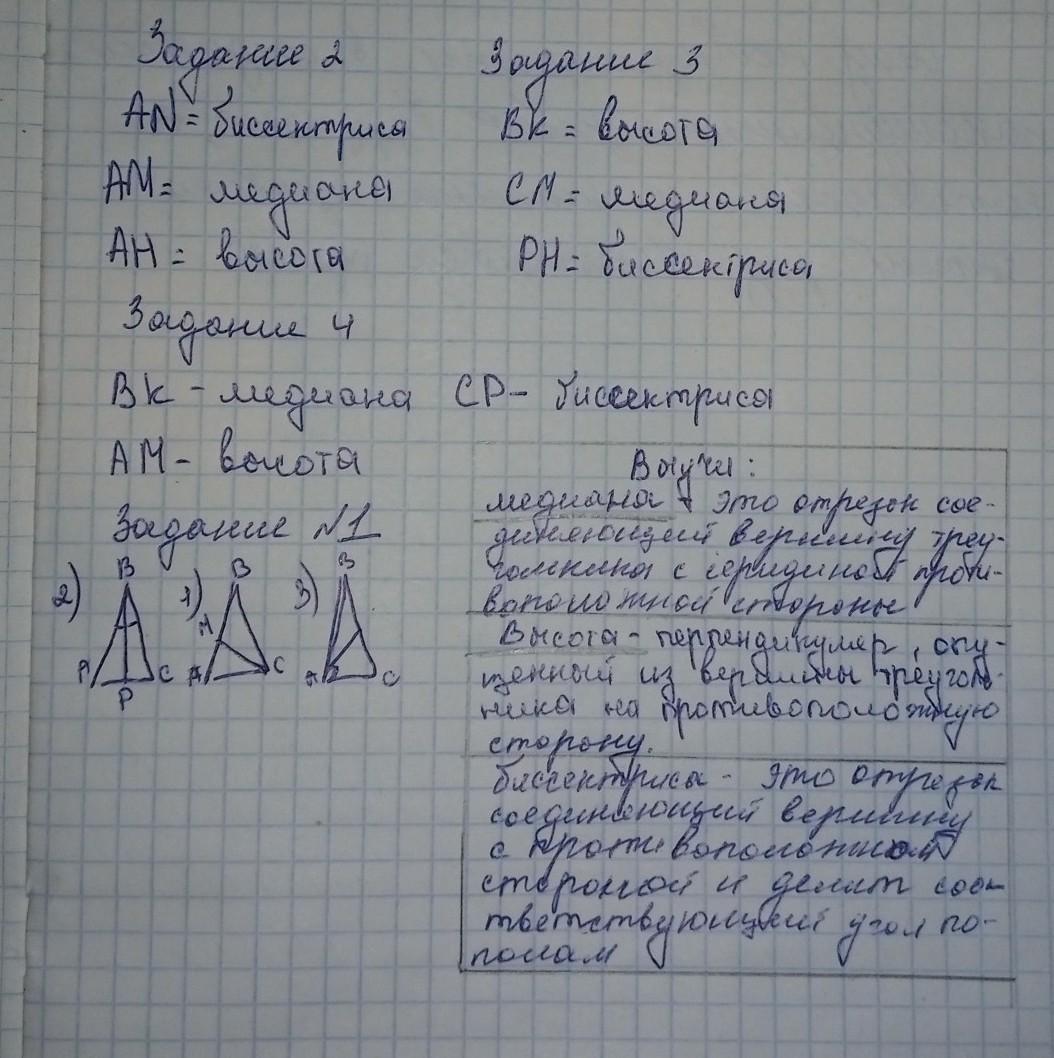 Задание 2
AN = биссектриса
AM = медиана
AH = высота
Задание 3
BK = высота
CM = медиана
PH = биссектриса
Задание 4
BK - медиана CP - биссектриса
AM - высота
Задание №1
2) B A C P
1) B M A C
3) B A C
Выучи:
медиана - это отрезок сое-
диняющий вершину треу-
гольника с серидиной проти-
воположной стороны
Высота - перпендикуляр, опу-
щенный из вершины треуголь-
ника на противоположную
сторону.
биссектриса - это отрезок
соединяющий вершину
с противоположной
стороной и делит соо-
тветствующий угол по-
полам